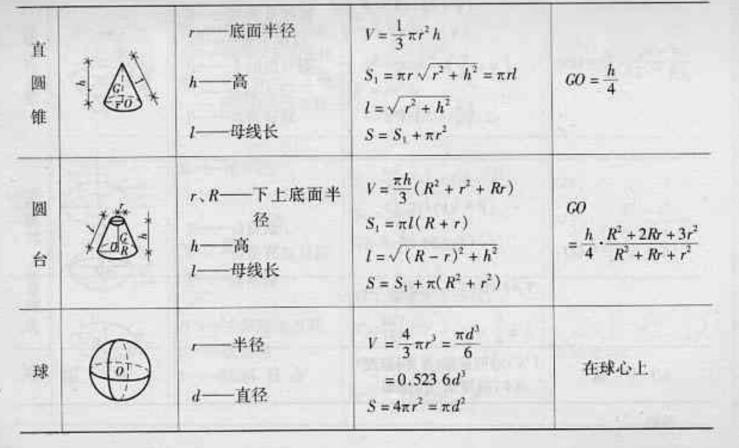 直圆锥
r——底面半径
h——高
l——母线长
V = \frac{1}{3}πr²h
S₁ = πr√(r² + h²) = πrl
l = √(r² + h²)
S = S₁ + πr²
GO = \frac{h}{4}
h
l
G
r
O
圆台
r、R——下上底面半
径
h——高
l——母线长
V = \frac{πh}{3}(R² + r² + Rr)
S₁ = πl(R + r)
l = √((R − r)² + h²)
S = S₁ + π(R² + r²)
GO
= \frac{h}{4}·\frac{R² + 2Rr + 3r²}{R² + Rr + r²}
r
l
G
h
O
R
球
r——半径
d——直径
V = \frac{4}{3}πr³ = \frac{πd³}{6}
= 0.523 6d³
S = 4πr² = πd²
在球心上
O